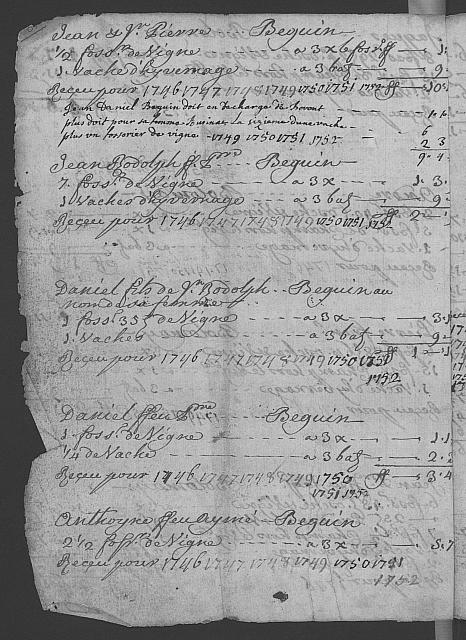 Jean & Vr. Pierre Beguin
1/2 foss.r de Vigne - - - a 3 x le fosr. ff - 1.
1. Vache d'hyvernage - - a 3 baf - 9.
Reçeu pour 1746 1747 1748 1749 1750 1751 1752 ff - 10.
Jean Daniel Beguin doit en decharge de
plus doit pour sa femme la sixieme d'une vache
plus un fossorier de vigne - 1749 1750 1751 1752 - 6
2 3
9. 4
Jean Rodolph ff Beguin
7. foss.r de Vigne - - - a 3 x - 1. 3.
1. Vaches d'hyvernage - - a 3 baf - 9.
Reçeu pour 1746 1747 1748 1749 1750 1751 1752 ff 2
Daniel fils de Vr. Rodolph - Beguin au
nom de sa femme
1 foss.r de Vigne - - - a 3 x - 3.
1. Vaches - - - a 3 baf - 9
Reçeu pour 1746 1747 1748 1749 1750 1751 ff 1
1752
Daniel ffeu Beguin
1. foss.r de Vigne - - - a 3 x - 1.
1/4 de Vache - - - a 3 baf - 2.
Reçeu pour 1746 1747 1748 1749 1750 ff - 3. 4
1751 1752
Anthoyne ffeu Aymé Beguin
2 1/2 foss.r de Vigne - - - a 3 x - 5. 7
Reçeu pour 1746 1747 1748 1749 1750 1751
1752